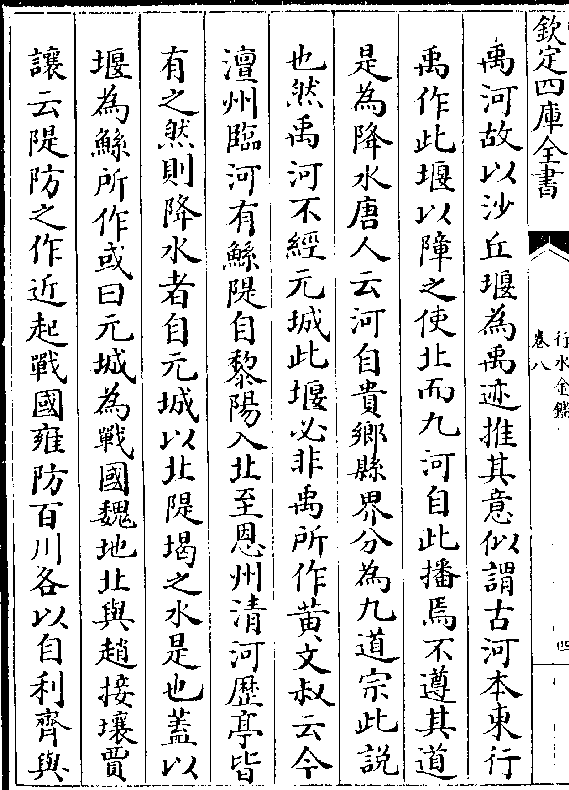 欽定四庫全書
行水金鑑
卷八
四
禹河故以沙丘堰為禹迹推其意似謂古河本東行
禹作此堰以障之使北而九河自此播焉不遵其道
是為降水唐人云河自貴鄉縣界分為九道宗此說
也然禹河不經元城此堰必非禹所作黄文叔云今
澶州臨河有鯀隄自黎陽入北至恩州清河歴亭皆
有之然則降水者自元城以北隄堨之水是也蓋以
堰為鯀所作或曰元城為戰國魏地北與趙接壤賈
讓云隄防之作近起戰國雍防百川各以自利齊與